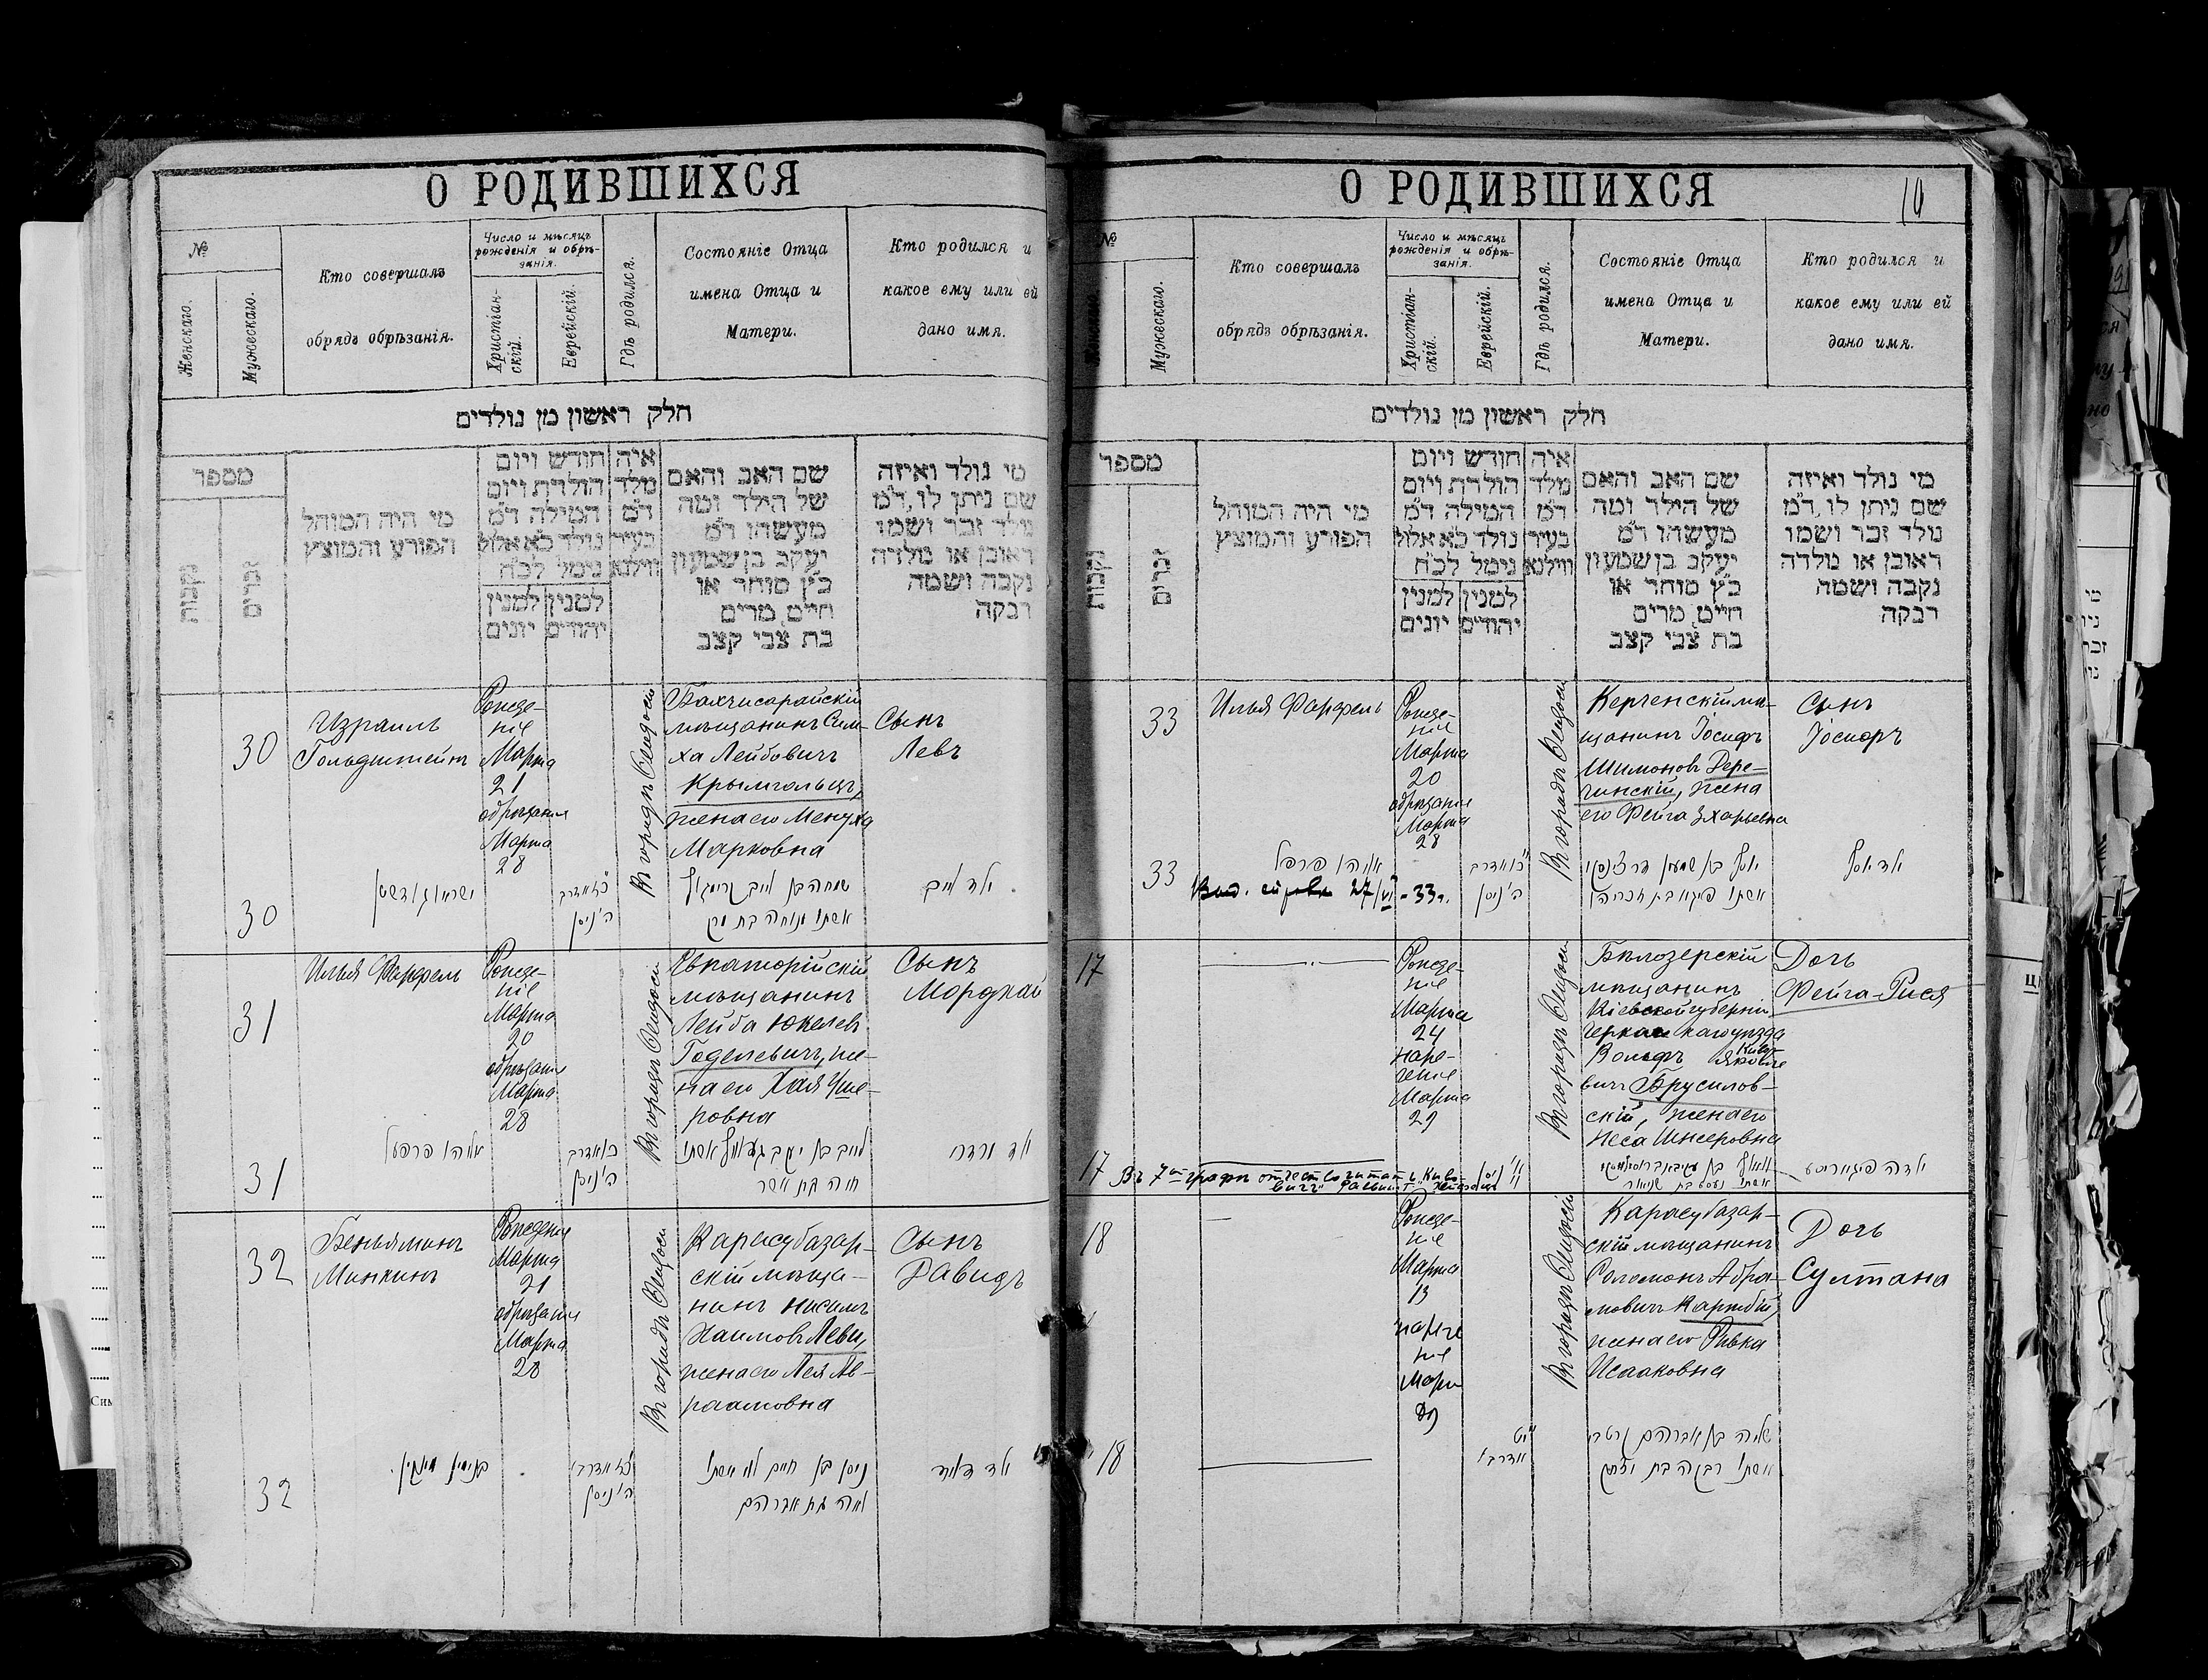 О РОДИВШИХСЯ
№
Женскаго.
Мужескаго.
Кто совершалъ
обрядъ обрѣзанія.
Число и мѣсяцъ
рожденія и обрѣ-
занія.
Христіан-
скій.
Еврейскій.
Гдѣ родился.
Состояніе Отца
имена Отца и
Матери.
Кто родился и
какое ему или ей
дано имя.
חלק ראשון מן נולדים
מספר
נקבות
זכרים
מי היה המוהל
הפורע והמוצץ
חודש ויום
הולדת ויום
המילה ד״מ
נולד כ׳א אלול
נימל לכ׳ח
למנין
יונים
למנין
יהודים
איה
מלד
ד״מ
בעיר
ווילנא
שם האב והאם
של הילד ומה
מעשהו ד״מ
יעקב בן שמעון
כ״ץ סוחר או
חייט, מרים
בת צבי קצב
מי נולד ואיזה
שם ניתן לו, ד״מ
נולד זכר ושמו
ראובן או נולדה
נקבה ושמה
רבקה
30
Израиль
Гольдштейнъ
Рожде-
ніе
Марта
21
обрѣзанія
Марта
28
Въ городѣ Ѳеодосіи
Бахчисарайскій
мѣщанинъ Сим-
ха Лейбовичъ
Крымгольцъ,
жена его Менуха
Марковна
Сынъ
Левъ
30
ה׳ ניסן
אשתו מנוחה בת
31
Илья Фарфель
Рожде-
ніе
Марта
20
обрѣзанія
Марта
28
Въ городѣ Ѳеодосіи
Евпаторійскій
мѣщанинъ
Лейба Юкелев
Годелевичъ, же-
на его Хая Уше-
ровна
Сынъ
Мордхай
31
אליהו פרפעל
ה׳ ניסן
חיה בת אשר
32
Беньяминъ
Минкинъ
Рожденіе
Марта
21
обрѣзанія
Марта
28
Въ городѣ Ѳеодосіи
Карасубазар-
скій мѣща-
нинъ Нисимъ
Хаимовъ Леви,
жена его Лея Ав-
раамовна
Сынъ
Давидъ
32
בנימין מינקין
ה׳ ניסן
ניסן בן חיים לוי אשתו
לאה בת אברהם
ילד דוד
О РОДИВШИХСЯ
10
№
Мужескаго.
Кто совершалъ
обрядъ обрѣзанія.
Число и мѣсяцъ
рожденія и обрѣ-
занія.
Христіан-
скій.
Еврейскій.
Гдѣ родился.
Состояніе Отца
имена Отца и
Матери.
Кто родился и
какое ему или ей
дано имя.
חלק ראשון מן נולדים
מספר
נקבות
זכרים
מי היה המוהל
הפורע והמוצץ
חודש ויום
הולדת ויום
המילה ד״מ
נולד כ׳א אלול
נימל לכ׳ח
למנין
יונים
למנין
יהודים
איה
מלד
ד״מ
בעיר
ווילנא
שם האב והאם
של הילד ומה
מעשהו ד״מ
יעקב בן שמעון
כ״ץ סוחר או
חייט, מרים
בת צבי קצב
מי נולד ואיזה
שם ניתן לו, ד״מ
נולד זכר ושמו
ראובן או נולדה
נקבה ושמה
רבקה
33
Илья Фарфель
Рожде-
ніе
Марта
20
обрѣзанія
Марта
28
Въ городѣ Ѳеодосіи
Керченскій мѣ-
щанинъ Іосифъ
Шимоновъ Дере-
чинскій, жена
его Фейга Зхарьевна
Сынъ
Іосифъ
33
אליהו פרפל
27/VI - 33 г.
ה׳ ניסן
אשתו פיגא בת זכריהו
ילד יוסף
17
Рожде-
ніе
Марта
24
наре-
ченіе
Марта
29
Въ городѣ Ѳеодосіи
Бѣлозерскій
мѣщанинъ
Кіевской губерніи
Черкаскаго уѣзда
Вольфъ
вичъ Брусилов-
скій, жена его
Неса Шнеровна
Дочь
Фейга-Рися
17
Въ 7й графѣ отчество читать
18
Рожде-
ніе
Марта
13
Въ городѣ Ѳеодосіи
Карасубазар-
скій мѣщанинъ
Соломонъ Абра-
мовичъ
жена его Ривка
Исааковна
Дочь
Султана
18
אשתו רבקה בת יצחק